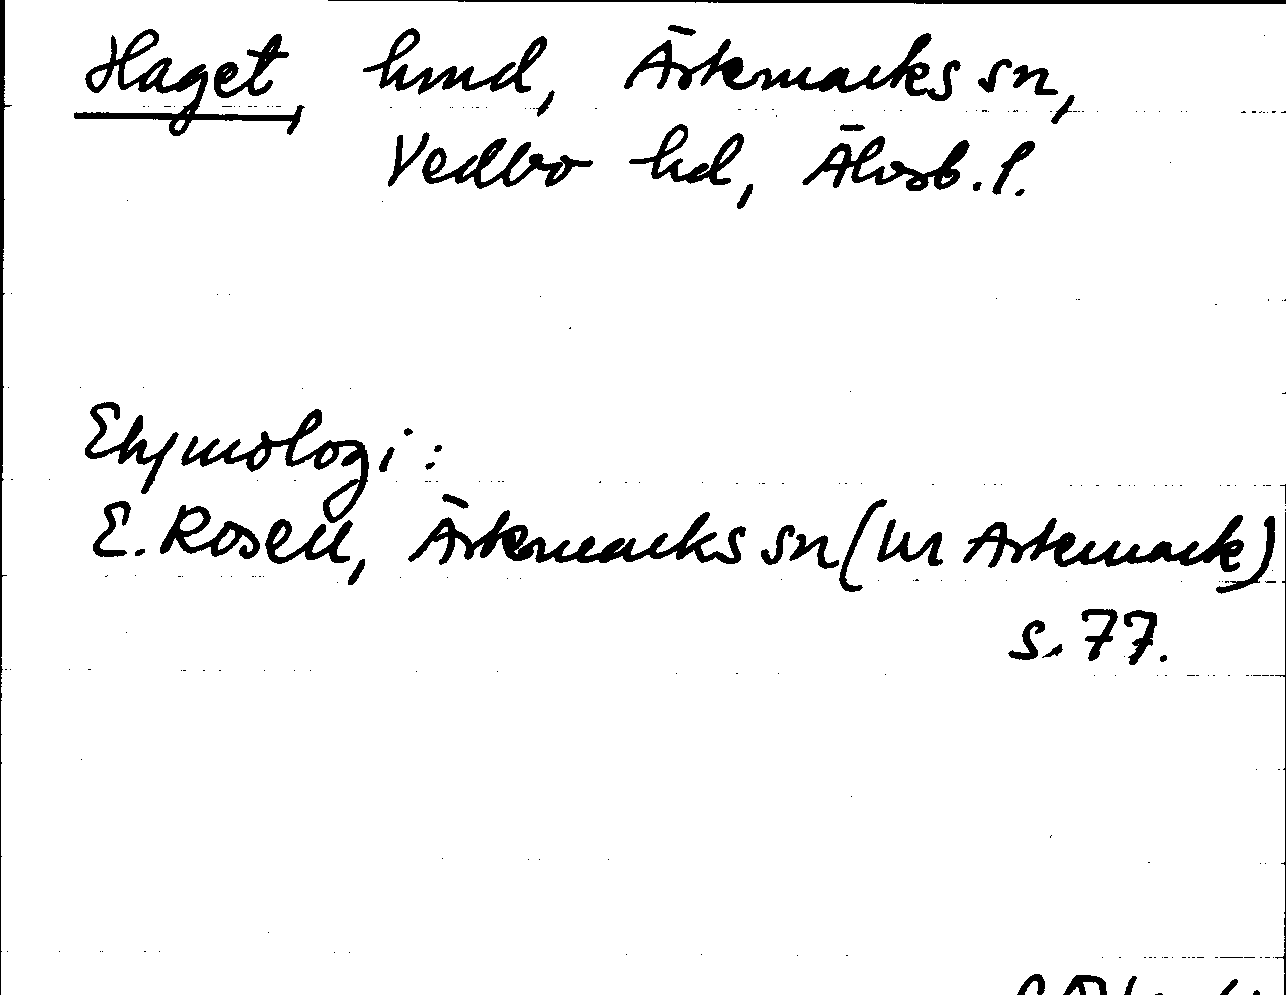 Haget, hmd, Ärtemarks sn,
Vedbo hd, Älvsb. l.
Etymologi:
E. Rosell, Ärtemarks sn (ur Artemark)
s. 77.